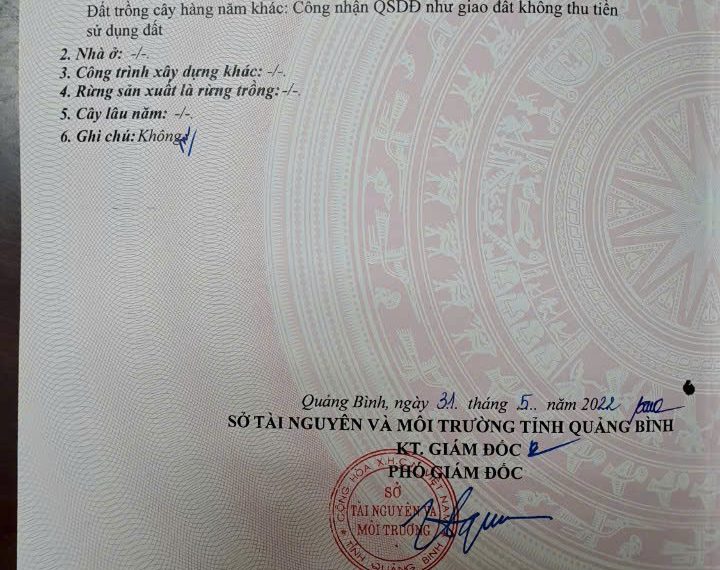 Đất trồng cây hàng năm khác: Công nhận QSDĐ như giao đất không thu tiền
sử dụng đất
2. Nhà ở: -/-.
3. Công trình xây dựng khác: -/-.
4. Rừng sản xuất là rừng trồng: -/-.
5. Cây lâu năm: -/-.
6. Ghi chú: Không
Quảng Bình, ngày 31. tháng .5.. năm 2022
SỞ TÀI NGUYÊN VÀ MÔI TRƯỜNG TỈNH QUẢNG BÌNH
KT. GIÁM ĐỐC
PHÓ GIÁM ĐỐC
CỘNG HÒA X.H.C.N VIỆT NAM
SỞ
TÀI NGUYÊN VÀ
MÔI TRƯỜNG
TỈNH QUẢNG BÌNH